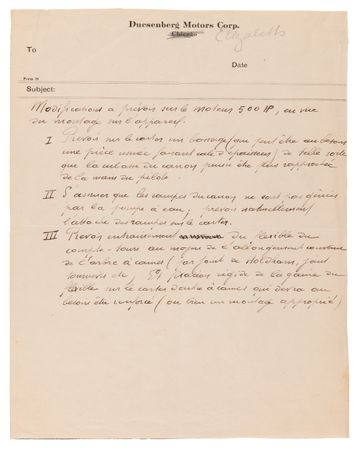 Duesenberg Motors Corp.
Chicago
Elizabeth
To
Date
Form 10
Subject:
Modifications a prevoir sur le moteur 500 HP, en vue
du montage sur l'appareil.
I Prevoir sur le carter un bossage (qui peut être au besoin
une pièce usinée faisant cale d'épaisseur) de telle sorte
que la culasse du canon puisse être plus rapprochée
de la main du pilote.
II S'assurer que les rampes du canon ne sont pas gênées
par la pompe à eau, prevoir naturellement
l'attache des rampes sur le carter.
III Prevoir entrainement du flexible du
compte-tours au moyen de l'allongement
de l'arbre à cames (par joint de Holdham, joint
tournevis etc, fixation rigide de la gaine du
flexible sur le carter d'arbre à cames qui devra au
besoin être renforcé (ou bien un montage approprié)